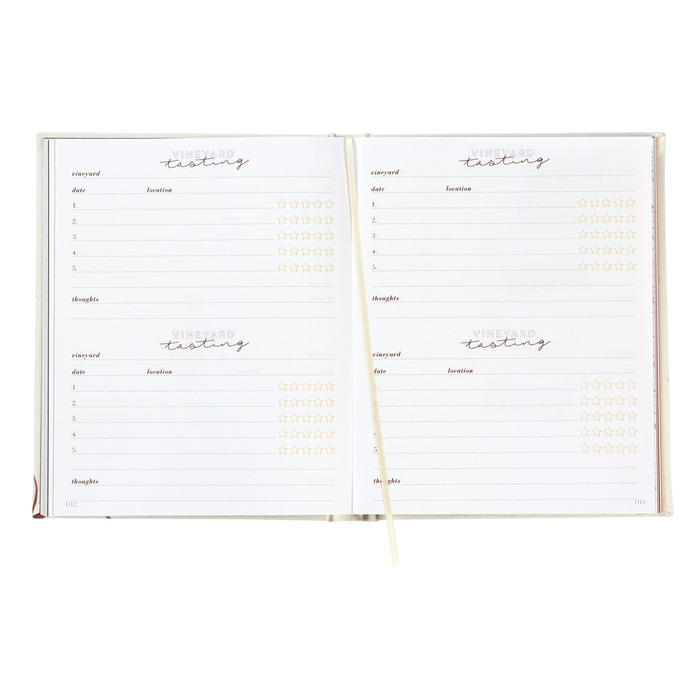 VINEYARD
tasting
vineyard
date location
1.
2.
3.
4.
5.
thoughts
VINEYARD
tasting
vineyard
date location
1.
2.
3.
4.
5.
thoughts
102
VINEYARD
tasting
vineyard
date location
1.
2.
3.
4.
5.
thoughts
VINEYARD
tasting
vineyard
date location
1.
2.
3.
4.
5.
thoughts
103